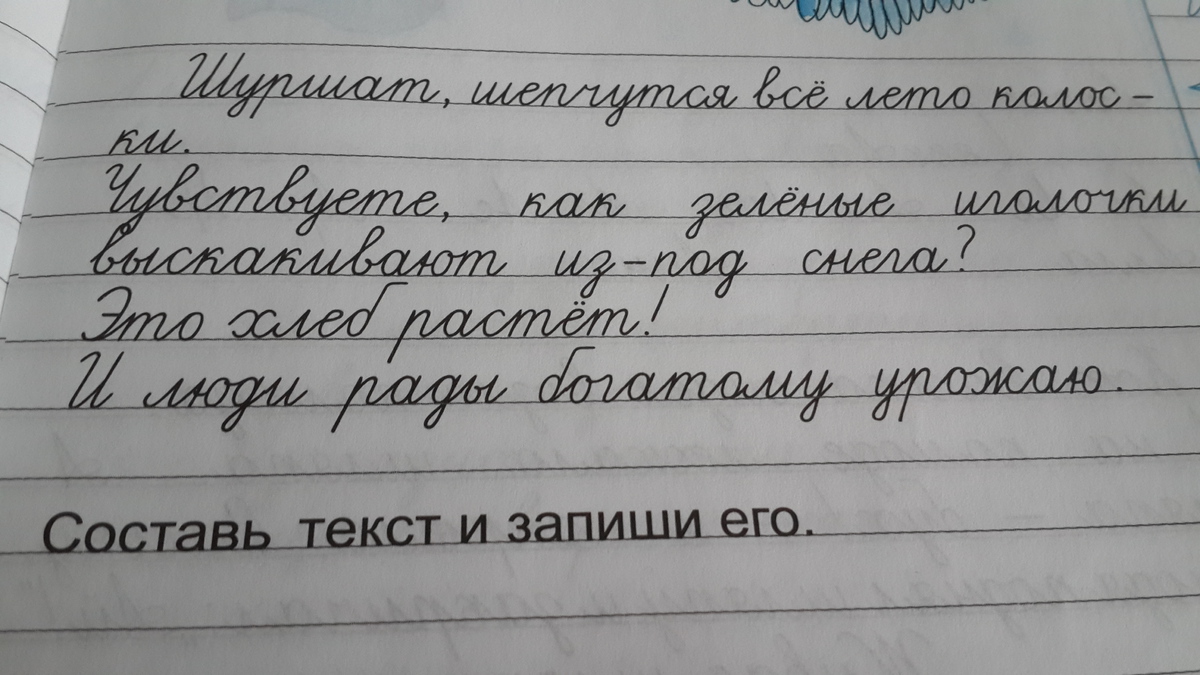 Шуршат, шепчутся всё лето колос-
ки.
Чувствуете, как зелёные иголочки
выскакивают из-под снега?
Это хлеб растёт!
И люди рады богатому урожаю.
Составь текст и запиши его.